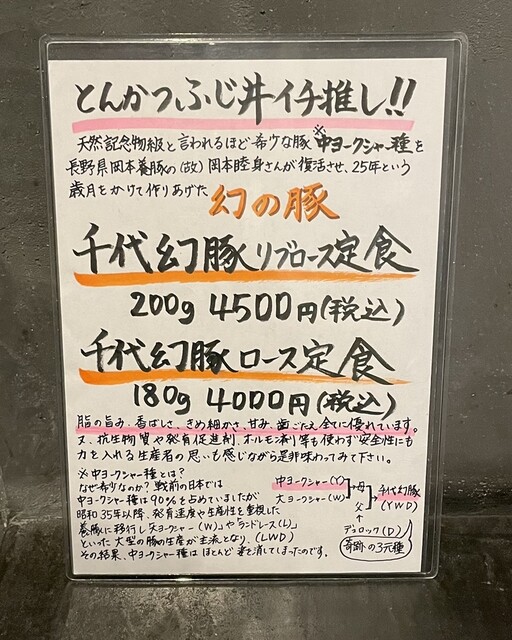 とんかつふじ井イチ推し!!
天然記念物級と言われるほど希少な豚 ※中ヨークシャー種を
長野県岡本養豚の(故)岡本陸身さんが復活させ、25年という
歳月をかけて作りあげた 幻の豚
千代幻豚リブロース定食
200g 4500円(税込)
千代幻豚ロース定食
180g 4000円(税込)
脂の旨み、香ばしさ、きめ細かさ、甘み、歯ごたえ全てに優れています。
又、抗生物質や発育促進剤、ホルモン剤等も使わず安全性にも
力を入れる生産者の思いも感じながら是非味わってみて下さい。
※中ヨークシャー種とは?
なぜ希少なのか?戦前の日本では
中ヨークシャー種は90%を占めていましたが
昭和35年以降、発育速度や生産性を重視した
養豚に移行し大ヨークシャー(W)やランドレース(L)
といった大型の豚の生産が主流となり、(LWD)
その結果、中ヨークシャー種はほとんど姿を消してしまったのです。
中ヨークシャー(Y)
大ヨークシャー(W)
→母
→千代幻豚
(YWD)
父
↑
デュロック(D)
奇跡の3元種